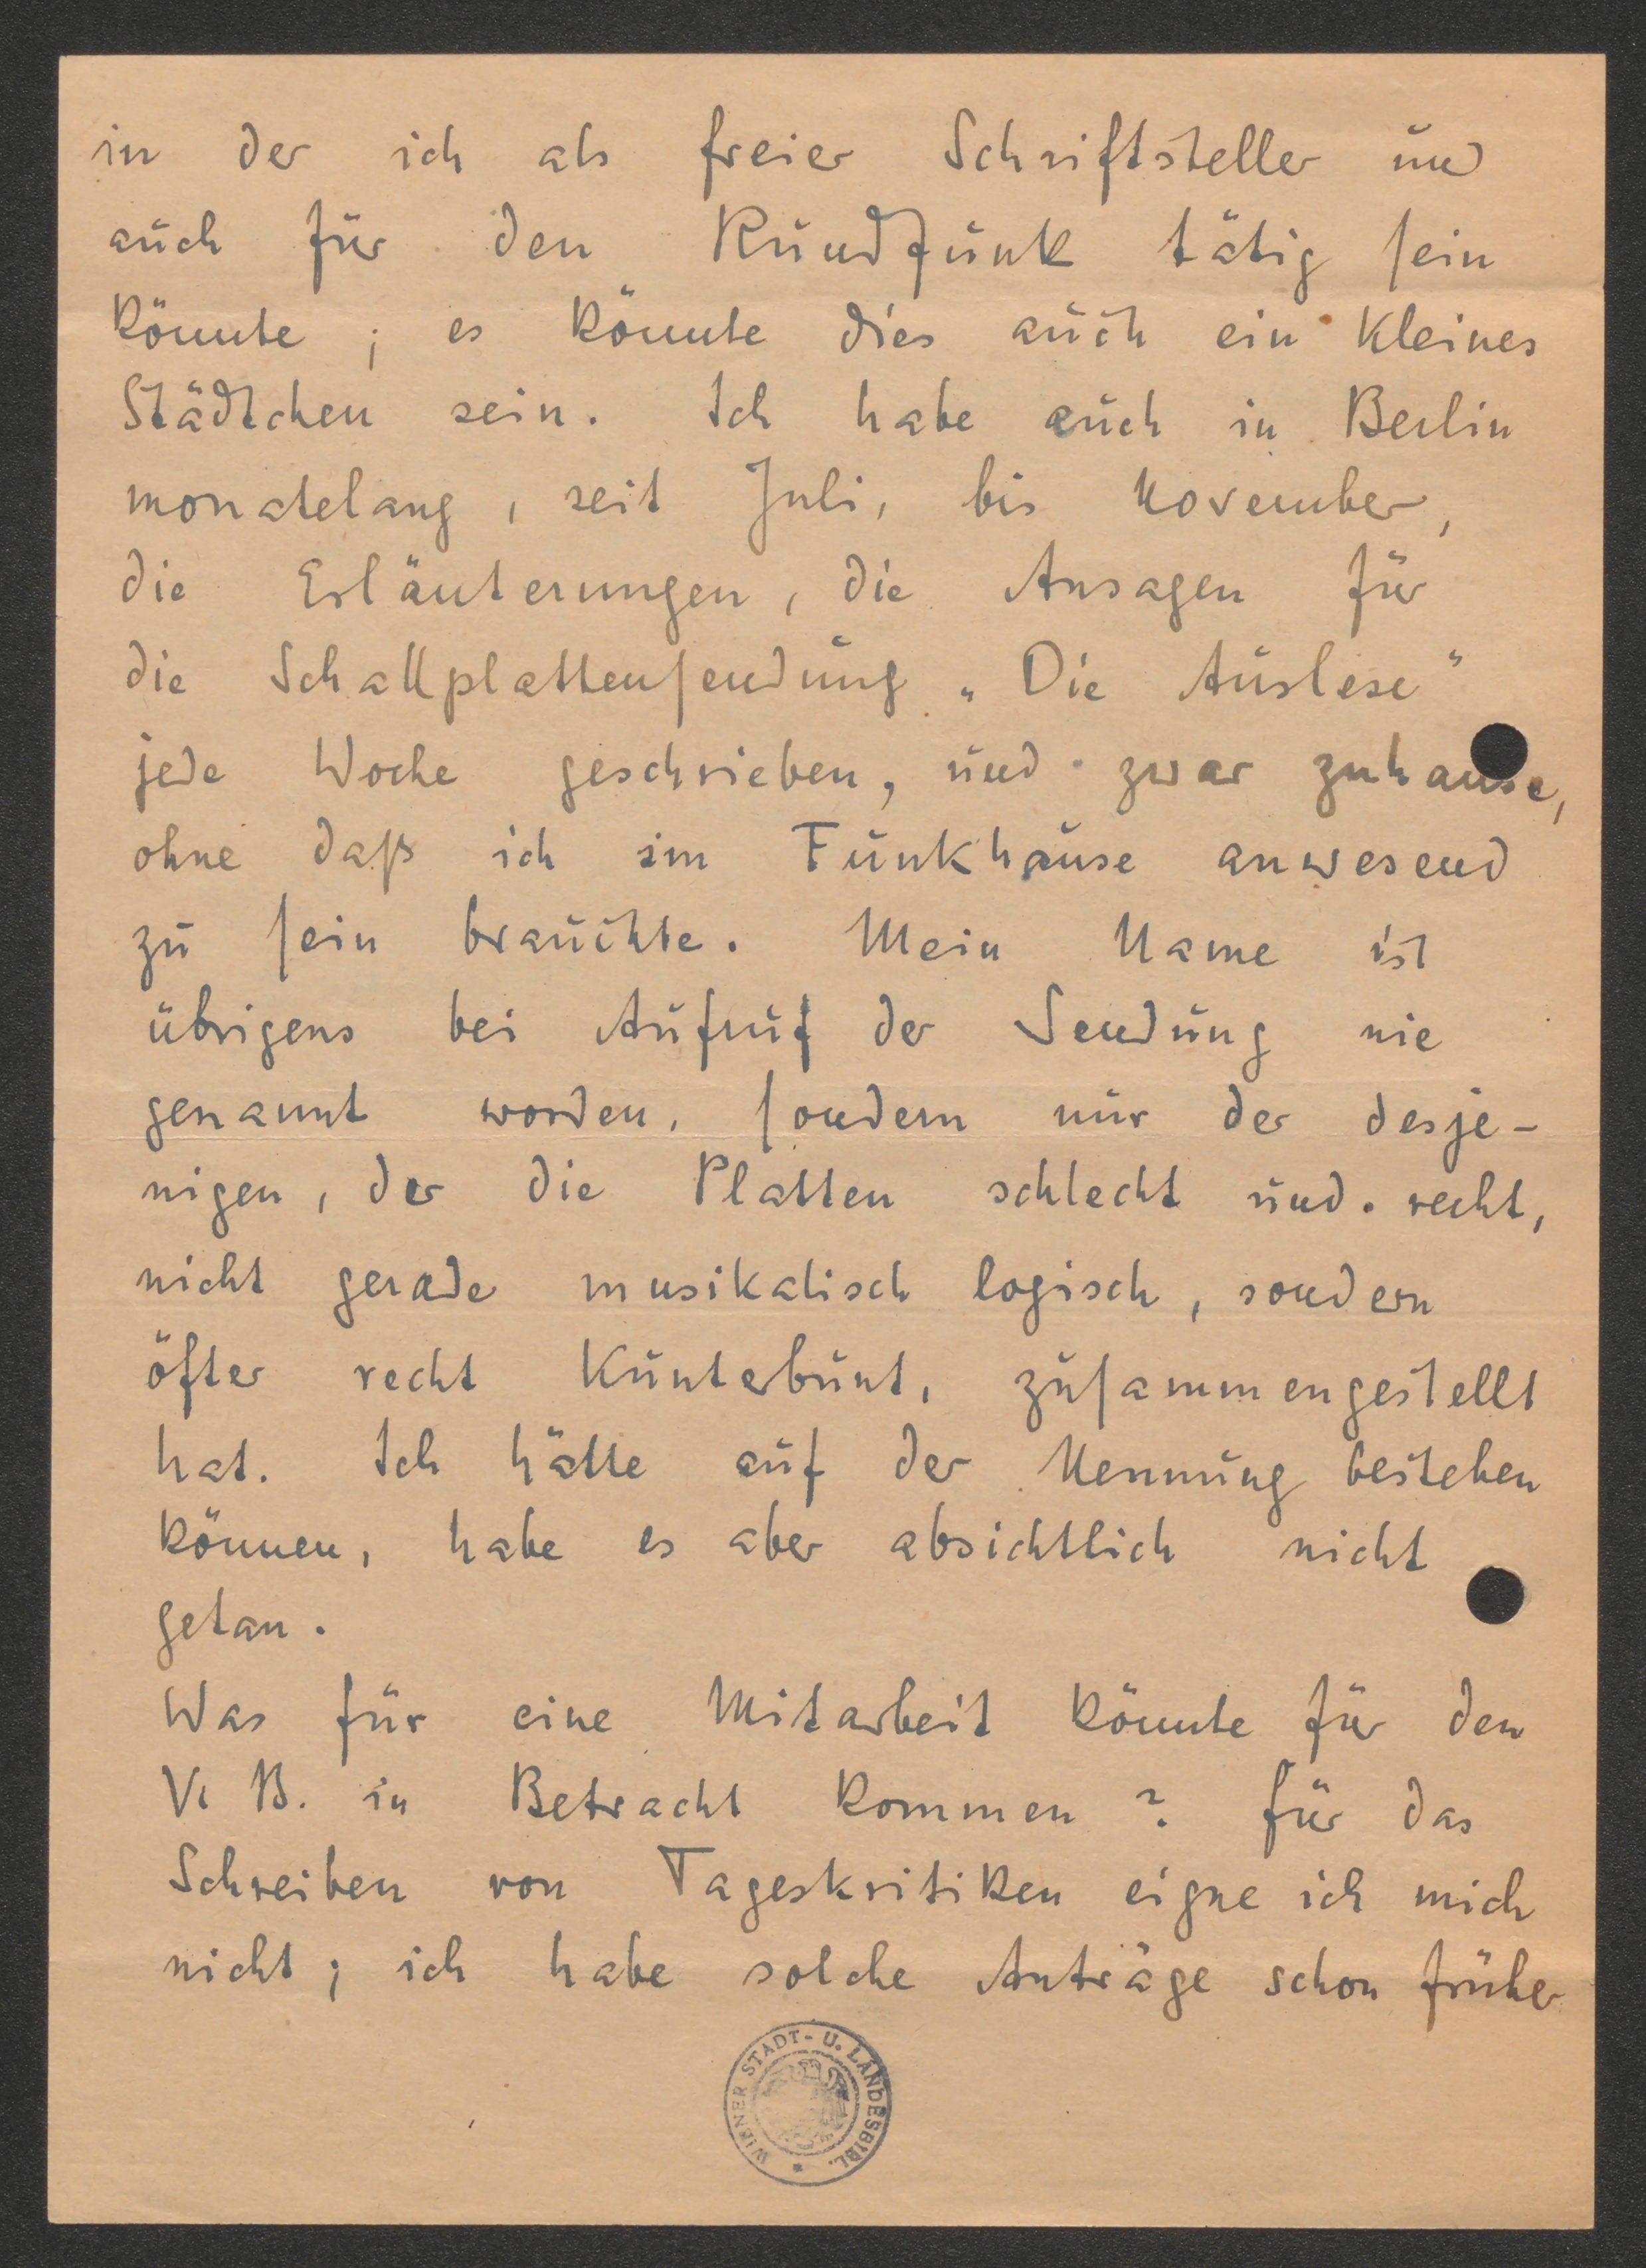 in der ich als freier Schriftsteller und
auch für den Rundfunk tätig sein
könnte; es könnte dies auch ein kleines
Städtchen sein. Ich habe auch in Berlin
monatelang, seit Juli, bis November,
die Erläuterungen, die Ansagen für
die Schallplattensendung „Die Auslese"
jede Woche geschrieben, und zwar zuhause,
ohne daß ich im Funkhause anwesend
zu sein brauchte. Mein Name ist
übrigens bei Aufruf der Sendung nie
genannt worden, sondern nur der desje-
nigen, der die Platten schlecht und recht,
nicht gerade musikalisch logisch, sondern
öfter recht kunterbunt, zusammengestellt
hat. Ich hätte auf der Nennung bestehen
können, habe es aber absichtlich nicht
getan.
Was für eine Mitarbeit könnte für den
V. B. in Betracht kommen? Für das
Schreiben von Tageskritiken eigne ich mich
nicht; ich habe solche Anträge schon früher
WIENER STADT- U. LANDESBIBL.